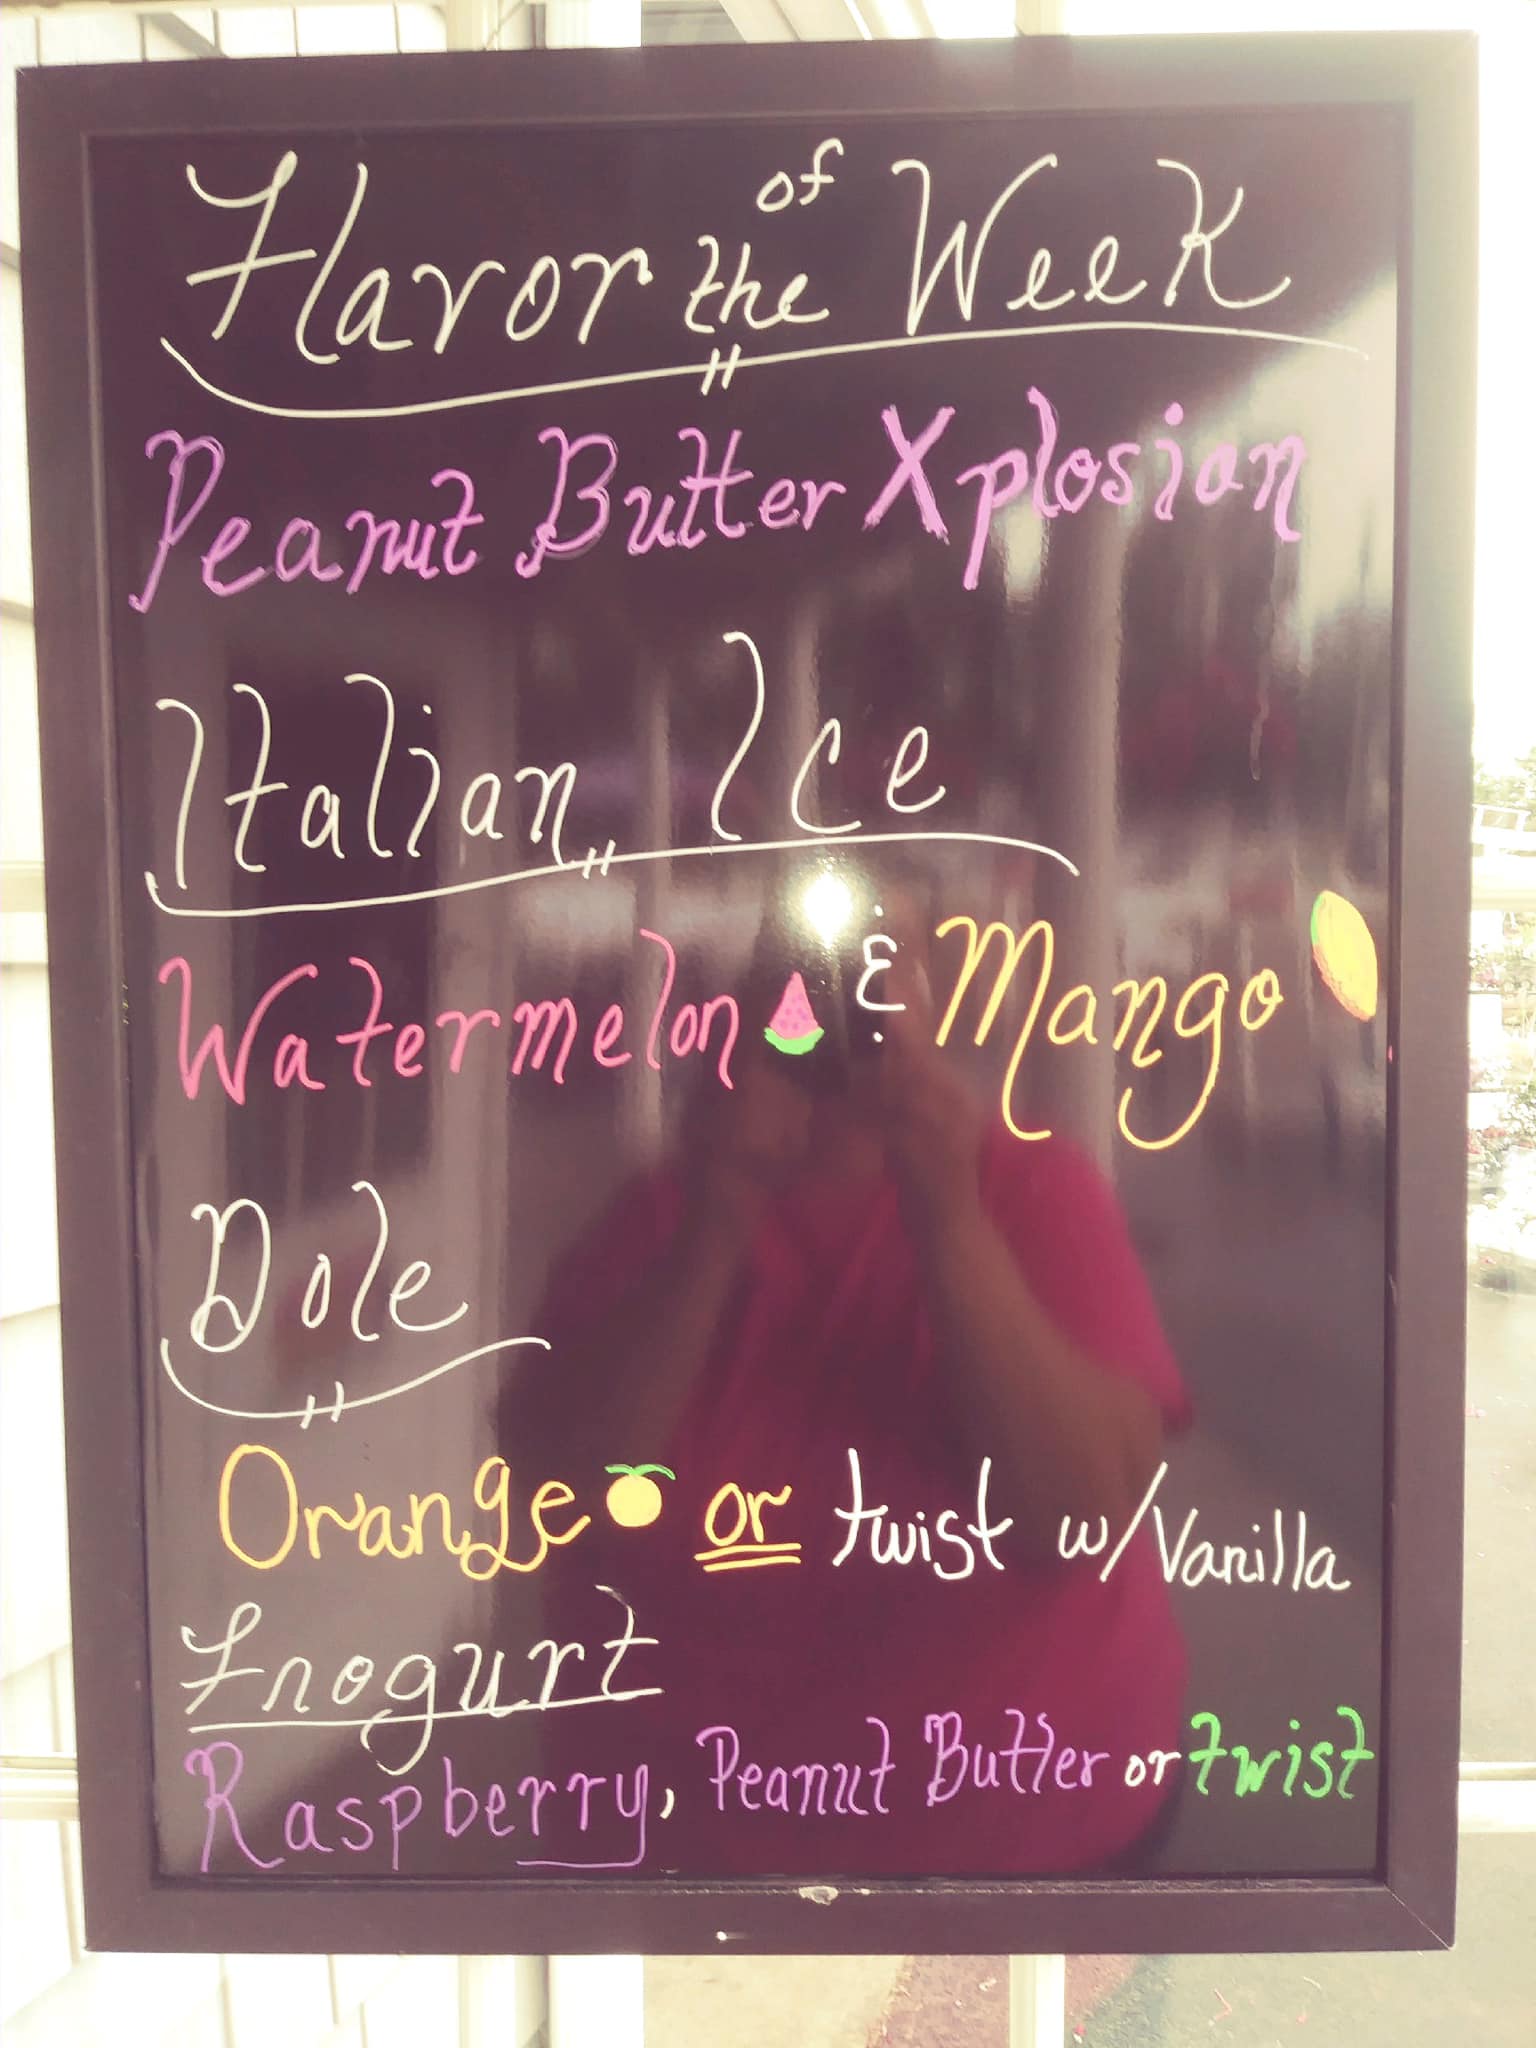 Flavor of the Week
Peanut Butter Xplosion
Italian Ice
Watermelon & Mango
Dole
Orange or twist w/Vanilla
Frogurt
Raspberry, Peanut Butter or twist